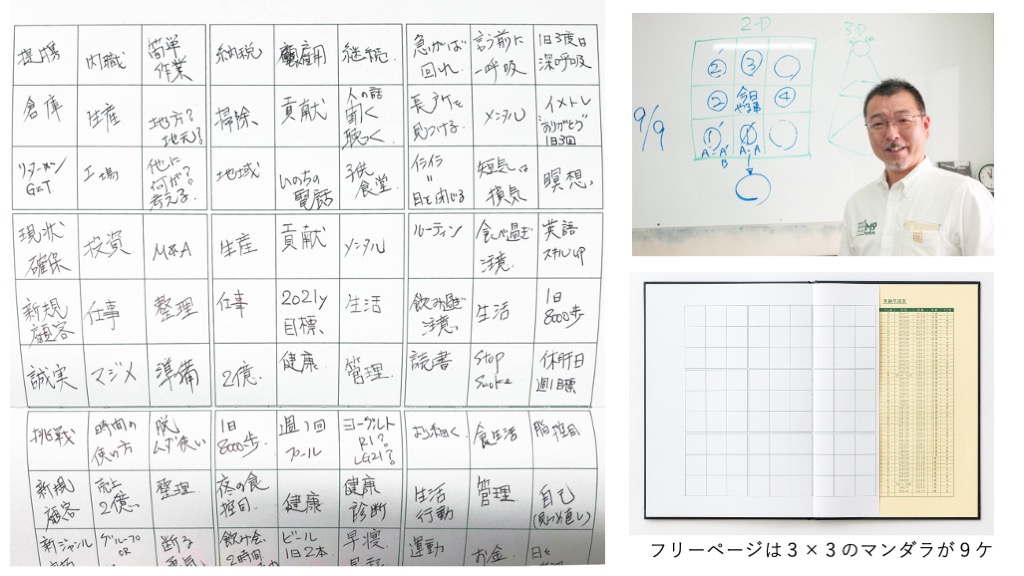 内職
簡単
作業
納税
雇用
継続
急がば
回れ
言う前に
一呼吸
1日3度は
深呼吸
倉庫
生産
地方?
地元?
掃除、
貢献
人の話
聞く
聴く
長所を
見つける
メンタル
イメトレ
ありがとう
1日3回
工場
他に
何が?
考える。
地域
いのちの
電話
子供
食堂
イライラ
=
目を閉じる
短気は
損気
瞑想、
現状
確保
投資
M&A
生産
貢献
メンタル
ルーティン
食べ過ぎ
注意.
英語
スキルUP
新規
顧客
仕事
整理
仕事
2021y
目標、
生活
飲み過ぎ
注意、
生活
1日
8000歩
誠実
マジメ
準備
2億.
健康
管理.
読書
Stop
Smoke
休肝日
週1目標
挑戦
時間の
使い方
脱
ムダ使い
1日
8000歩.
週1回
プール
ヨーグルト
R1?
LG21?
食生活
腹控目
新規
顧客
売上
2億、
整理
夜の食
控目.
健康
健康
診断
生活
行動
管理
自己
(見つめ直し)
新ジャンル
グループ
OR
断る
勇気
飲み会
2時間
ビール
1日2本.
早寝
運動
お金
日々
2-D
3-D
9/9
②'
③
②
今日
やる事
④
①'
A-A'
B
①
A-A
年齢早見表
フリーページは3×3のマンダラが9ケ